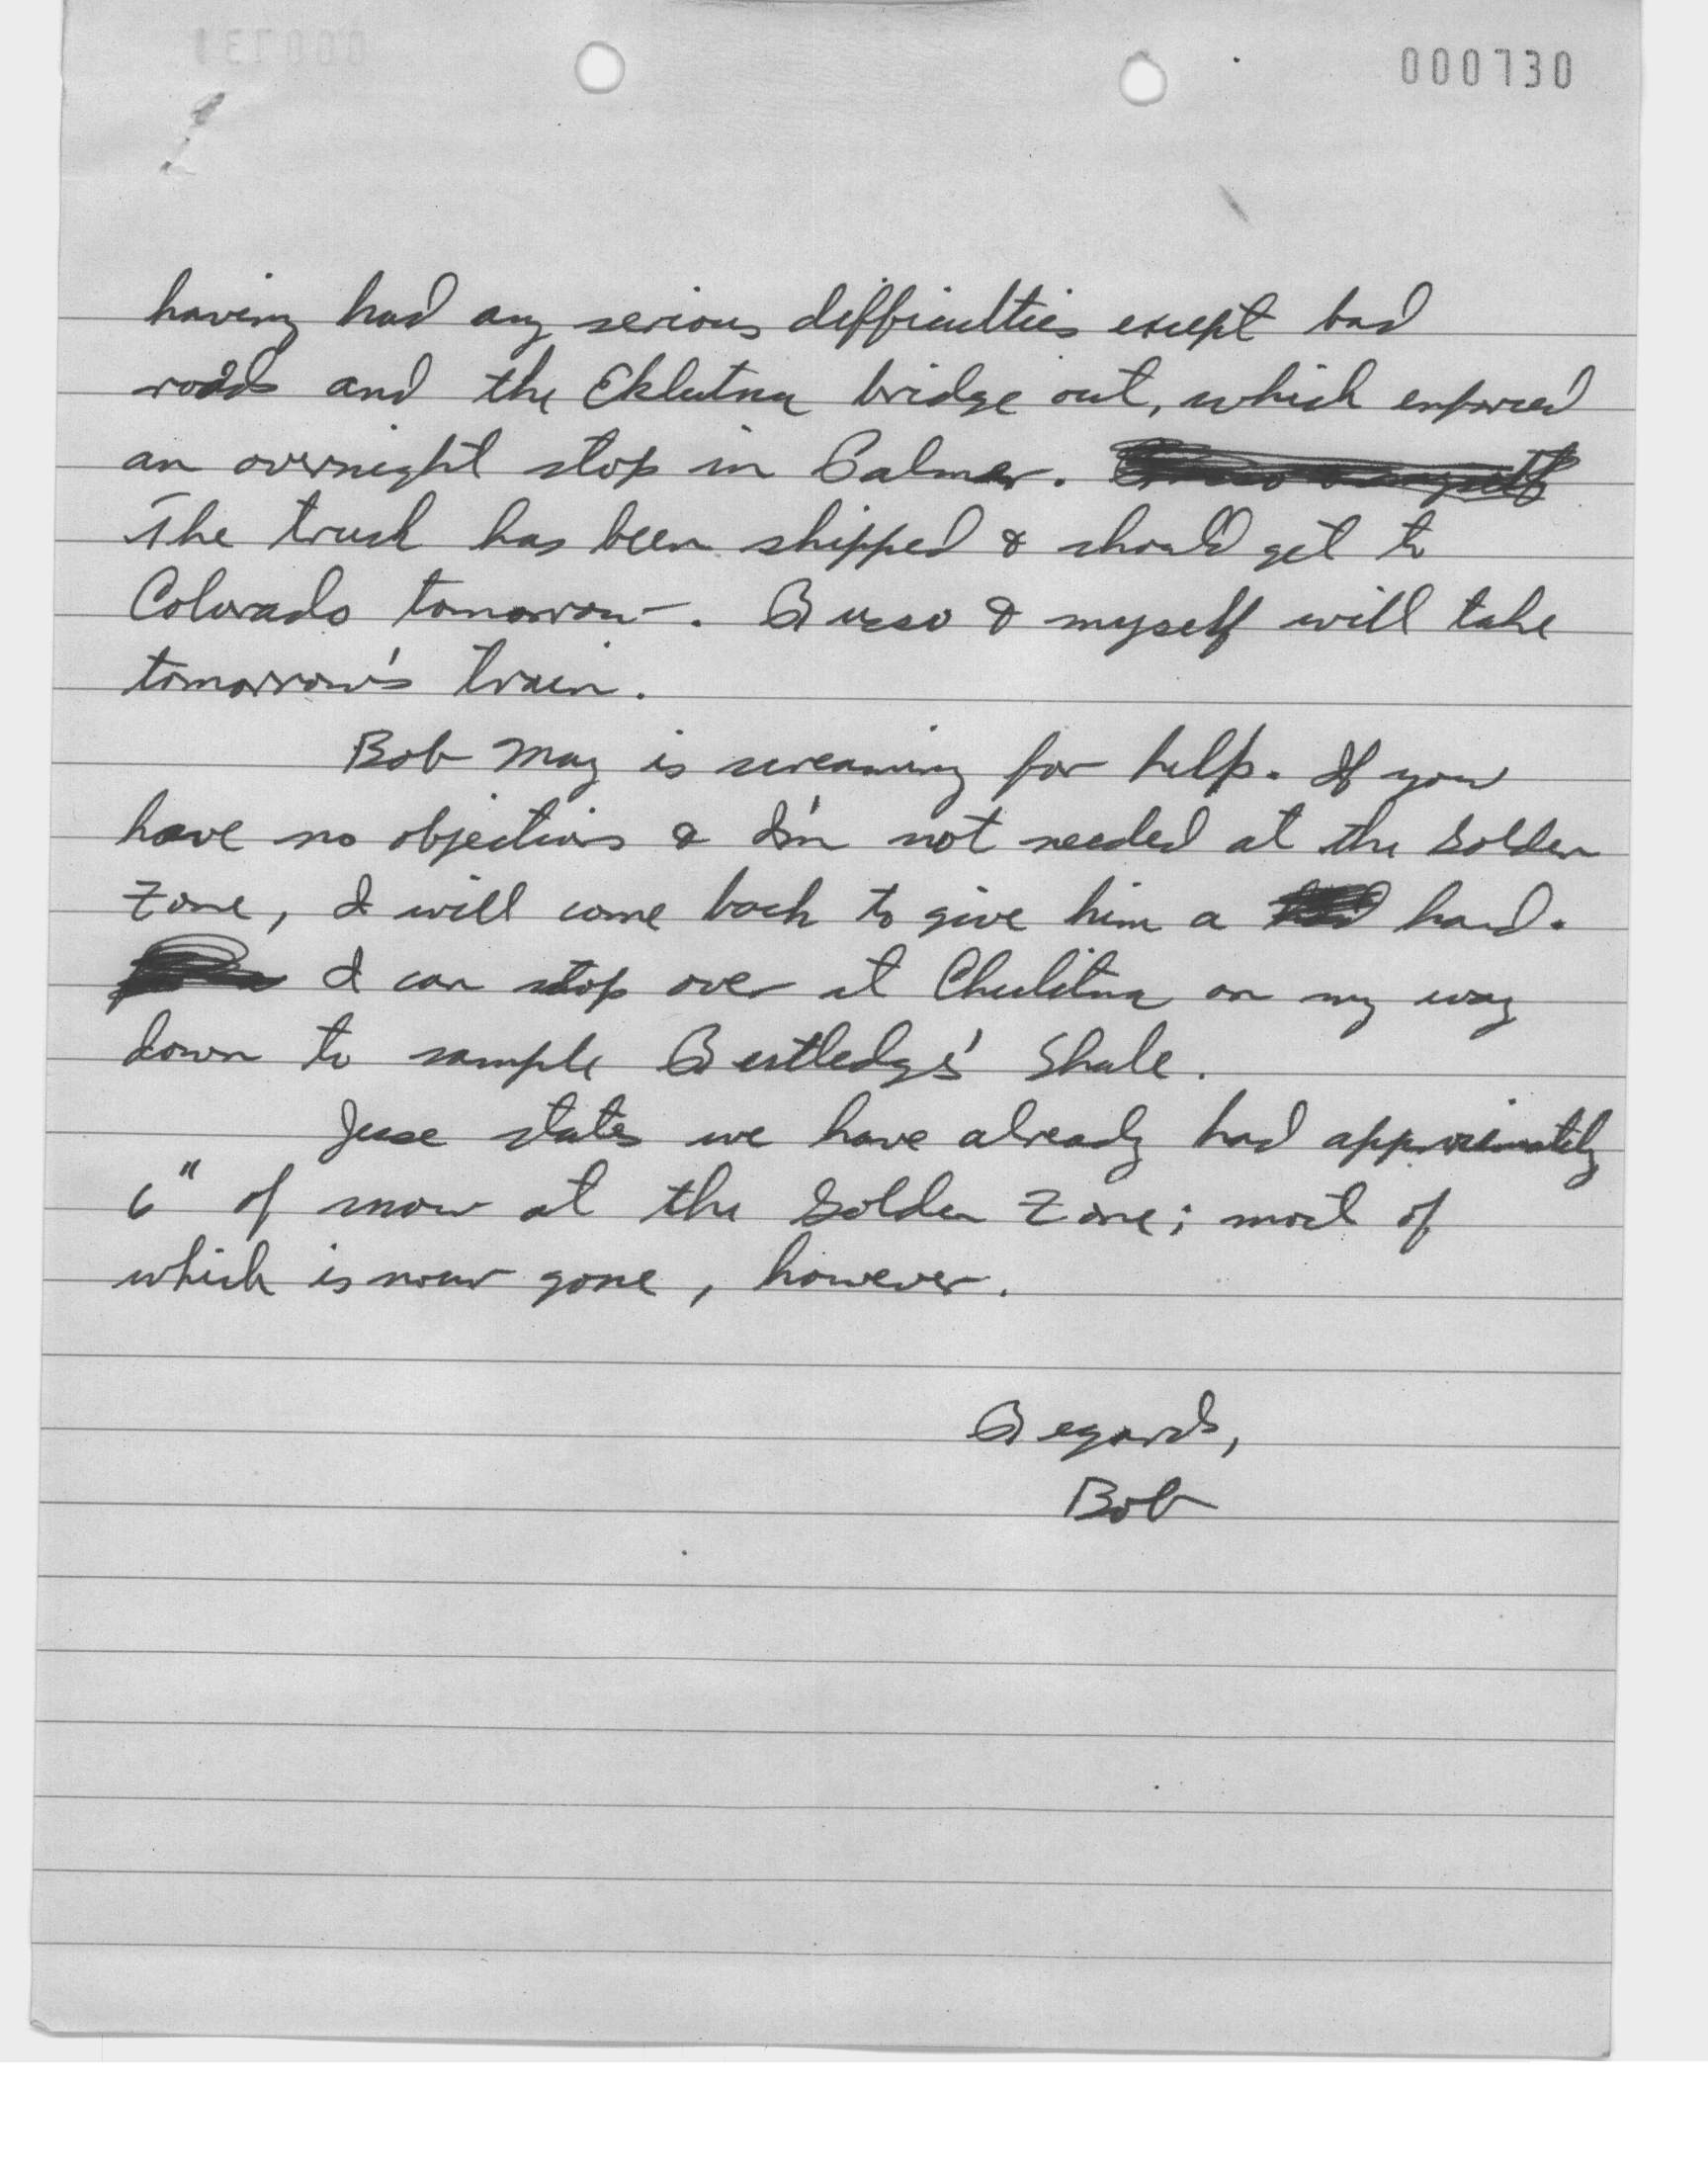 000730
having had any serious difficulties except bad
roads and the Eklutna bridge out, which enforced
an overnight stop in Palmer.
The truck has been shipped & should get to
Colorado tomorrow. Russo & myself will take
tomorrow's train.
Bob May is screaming for help. If you
have no objections & I'm not needed at the Golden
Zone, I will come back to give him a hand.
I can stop over at Chulitna on my way
down to sample Rutledge's Shale.
Jesse states we have already had approximately
6" of snow at the Golden Zone; most of
which is now gone, however.
Regards,
Bob